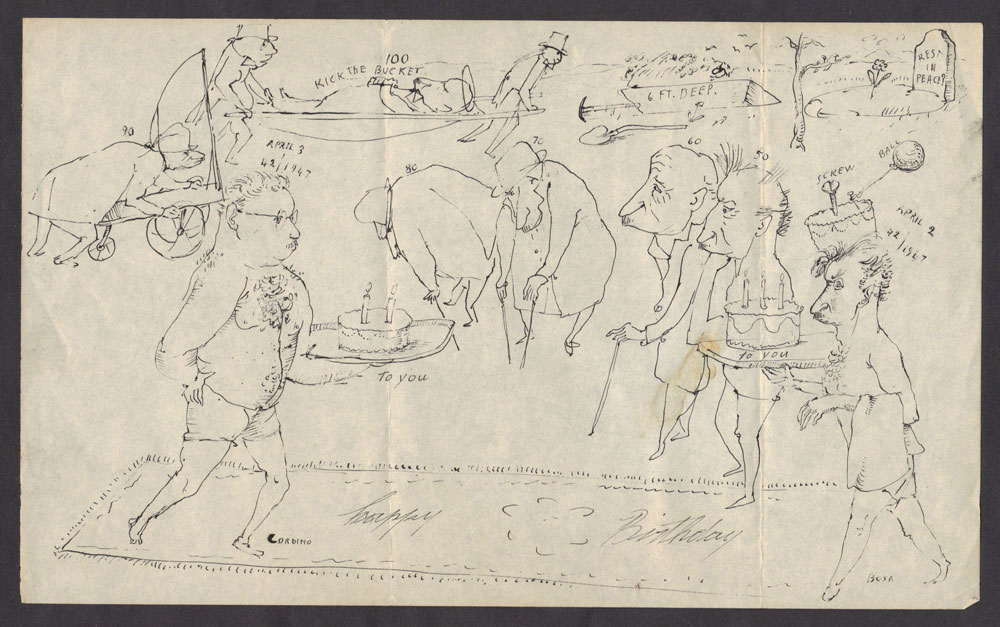 100
KICK THE BUCKET
REST
IN
PEACE?
6 FT. DEEP.
90
APRIL 3
42 / 1947
80
70
60
50
BALL
SCREW
APRIL 2
42 / 1947
to you
to you
happy Birthday
CORBINO
BOSA